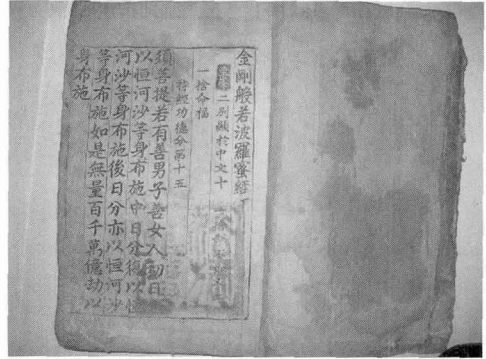 金剛般若波羅蜜經
二別顯於中文十
一捨命福
持經功德分第十五
須菩提若有善男子善女人初日
以恒河沙等身布施中日分復以恒
河沙等身布施後日分亦以恒河沙
等身布施如是無量百千萬億劫以
身布施